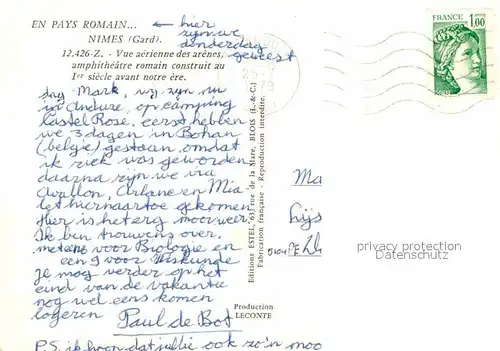 EN PAYS ROMAIN...
NIMES (Gard).
12.426-Z. - Vue aérienne des arènes,
amphithéâtre romain construit au
Ier siècle avant notre ère.
← hier
zijn we
donderdag
geweest
dag Mark, wij zijn nu
in Anduze, op camping
Castel Rose. eerst hebben
we 3 dagen in Bohan
(belgië) gestaan, omdat
ik ziek was geworden
daarna zijn we via
Avallon, Orlane en Mia
let hiernaartoe gekomen
Hier is het erg mooi weer.
Ik ben trouwens over.
met een voor Biologie en
een 9 voor Wiskunde
Je mag verder op het
eind van de vakantie
nog wel eens komen
logeren
Paul de Bot
P.S. ik hoop dat jullie ook zo'n moo
Editions ESTEL, 63, rue de la Mare, BLOIS (L.-&-C.)
Fabrication française - Reproduction interdite.
Production
LECONTE
FRANCE
1,00
Ma
Lijs
5104 PE
privacy protection
Datenschutz